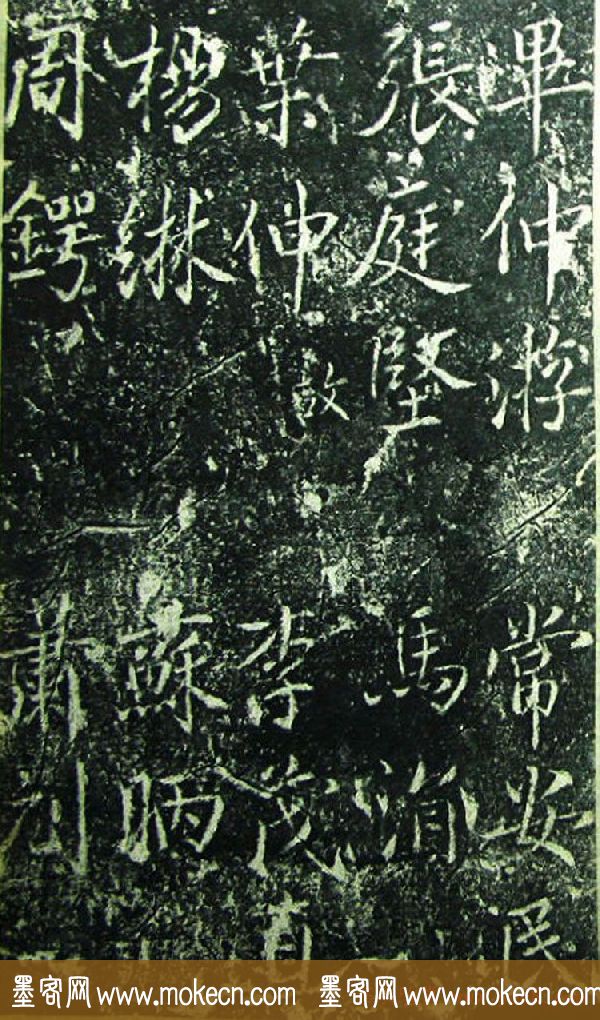 畢仲游 常安民
張庭堅 馬涓
葉伸 故 李茂
楊綝 蘇昞
周鍔 蕭
墨客网 www.mokecn.com 墨客网 www.mokecn.com